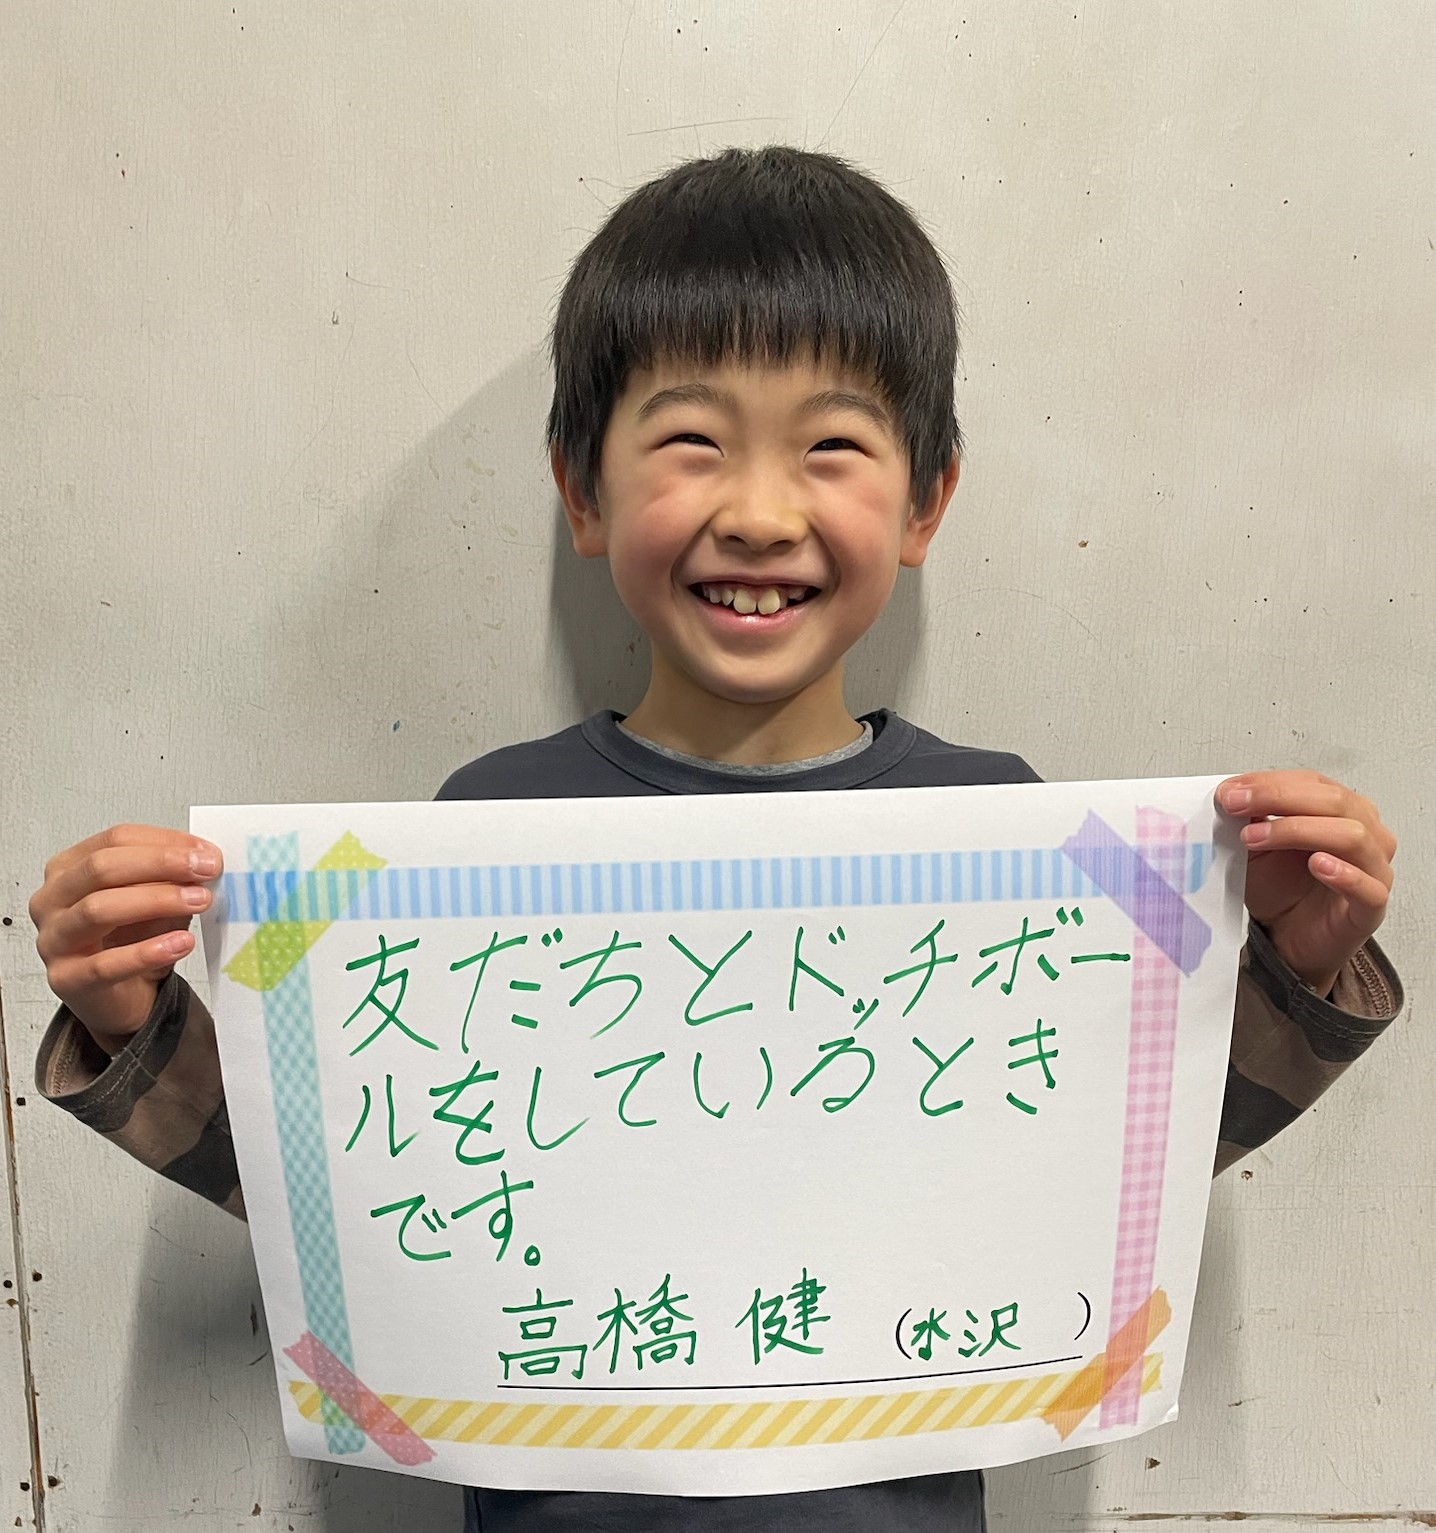 友だちとドッチボー
ルをしているとき
です。
高橋 健 (水沢 )